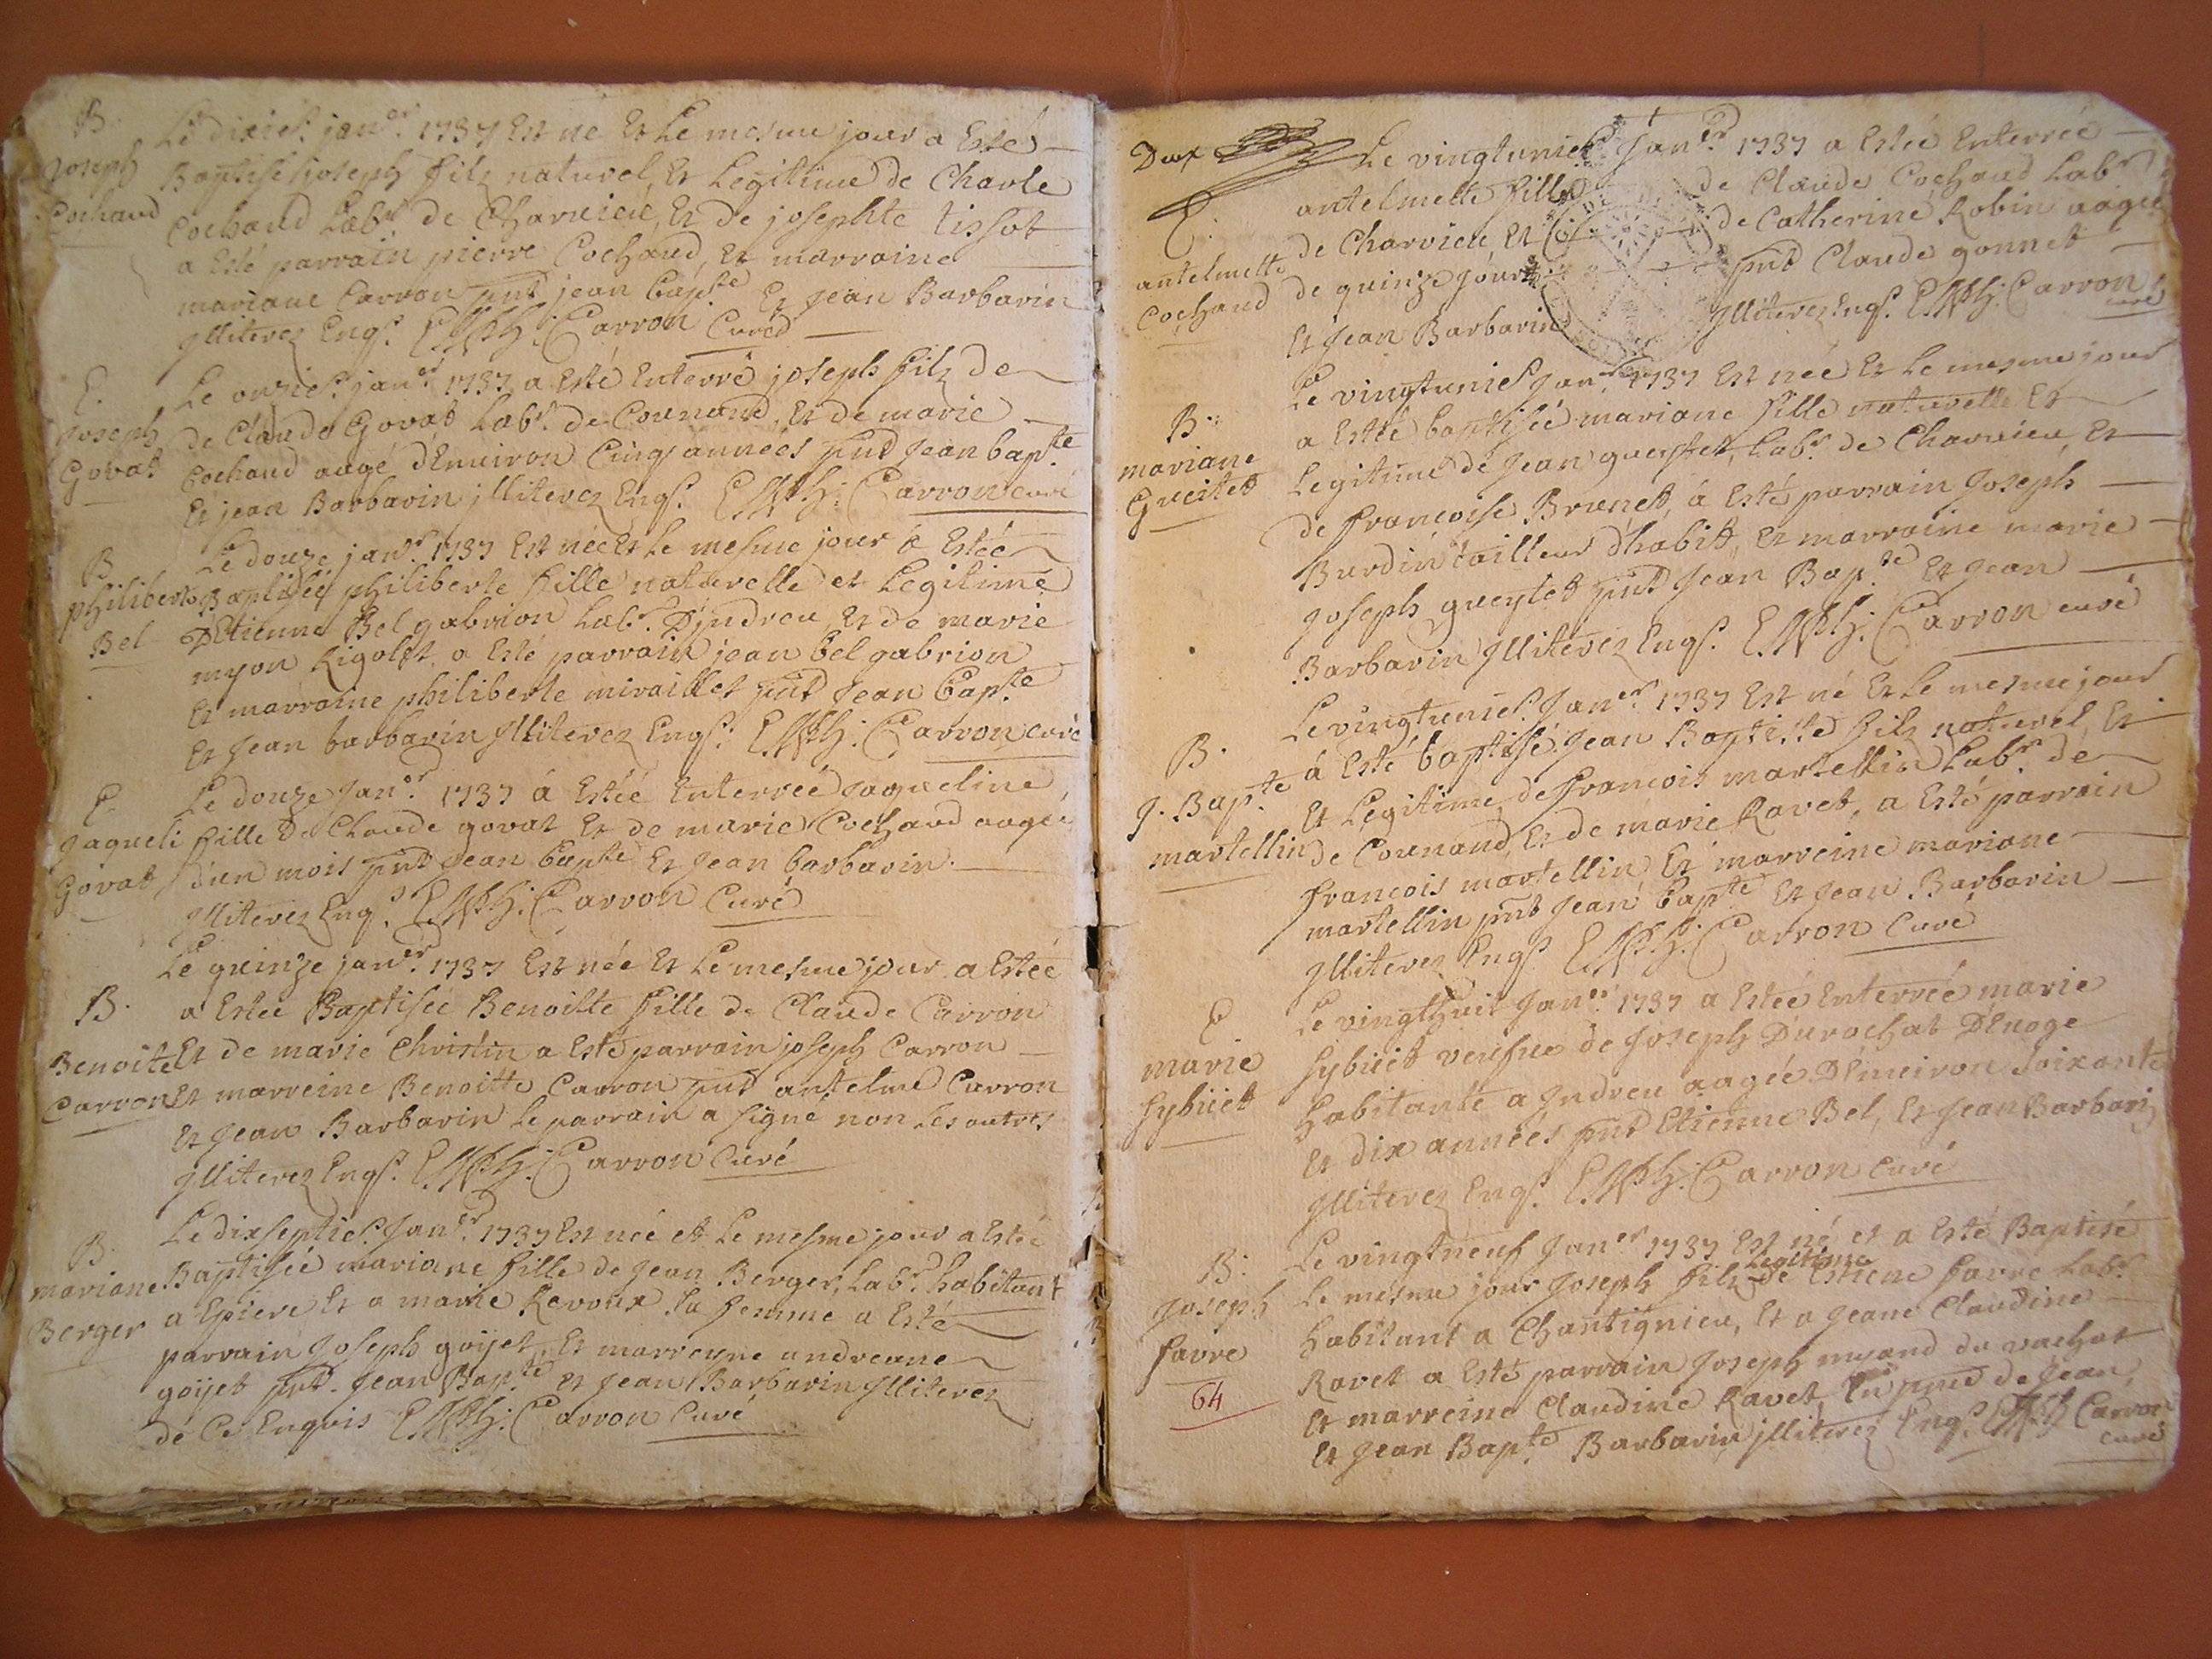 B.
Joseph
Cochand
Le dixie.^e jan^er. 1737 Est né Et Le mesme jour a Esté
Baptisé joseph filz naturel, Et Legitime de Charle
Cochand Lab^r de Charvieu, Et de josephte tissot
a Esté parrain pierre Cochand, Et marraine
mariane Carron pnt jean bap^te Et Jean Barbarin
Illiterez Enq^s. Carron Curé
E.
Joseph
Govat
Le onzie.^e jan^er 1737 a Esté Enterré joseph filz de
de Claude Govat Lab^r. de Counand, Et de marie
Cochand aagé d'Enuiron Cinq années pnt Jean bap^te
Et jean Barbarin jlliterez Enq^s. Carron curé
B
philiberte
Bel
Le douze jan^er. 1737 Est née Et Le mesme jour á Estée
Baptisée philiberte fille naturelle et Legitime
D'Etienne Bel gabrion Lab^r. D'jndreu, Et de marie
myon Rigolet a Esté parrain jean bel gabrion
Et marraine philiberte miraillet pnt Jean Bap^te
Et Jean barbarin Illiterez Enq^s. Carron curé
E
Jaqueli
Govat
Le douze Jan^er. 1737 á Estée Enterrée Jaqueline
fille De Claude govat Et de marie Cochand aagée
d'un mois pnt Jean bap^te Et Jean barbarin.
Illiterez Enq^s Carron Curé
B.
Benoite
Carron
Le quinze jan^er. 1737 Est née Et Le mesme jour a Estée
a Estée Baptisée Benoitte fille de Claude Carron
Et de marie Christin a Esté parrain joseph Carron
Et marreine Benoitte Carron pnt antelme Carron
Et Jean Barbarin Le parrain a signé non Les autres
Illiterez Enq^s. Carron Curé
B.
mariane
Berger
Le dixseptie.^e Jan^er. 1737 Est née et Le mesme jour a Estée
Baptisée mariane fille de Jean Berger, Lab^r. habitant
a Epiere Et a marie Revoux sa femme a Esté
parrain Joseph goÿet, Et marreyne andreane
goÿet pnt. Jean Bap^te et Jean Barbarin Illiterez
de Ce Enquis Carron Curé
Deux
E.
antelmette
Cochand
Le vingtunie.^e Jan^er 1737 a Estée Enterrée
antelmette fille de Claude Cochand Lab^r
de Charvieu Et de Catherine Robin aagée
de quinze jours pnt Claude gonnet
Et Jean Barbarin Illiterez Enq^s. Carron
curé
B.
mariane
Gueitet
Le vingtunie.^e Jan^er 1737 Est née Et Le mesme jour
a Estée baptisée mariane fille naturelle Et
Legitime de Jean gueytet, Lab^r. de Charuieu, Et
de francoise Brunet, á Esté parrain Joseph
Burdin tailleur d'habit, Et marraine marie
Joseph gueytet pnt Jean Bap^te Et Jean
Barbarin Illiterez Enq^s. Carron curé
B.
J. Bap^te
martellin
Le vingtunie.^e Jan^er 1737 Est né Et Le mesme jour
á Esté baptisé Jean Baptiste filz naturel, Et
Et Legitime de francois martellin Lab^r de
de Counand, Et de marie Ravet, a Esté parrain
francois martellin Et marreine mariane
martellin pnt Jean bap^te Et Jean Barbarin
Illiterez Enq^s Carron Curé
E
marie
Sybüet
Le vingthuit Jan^er. 1737 a Estée Enterrée marie
Sybüet veufue de Joseph Durochat D'Enoge
habitante a Jndreu aagée D'Emeiron Soixante
Et dix années pnt Etienne Bel, Et Jean Barbarin
Illiterez Enq^s. Carron Curé
B.
Joseph
favre
64
Le vingtneuf Jan^er 1737 Est né et a Esté Baptisé
Le mesme jour Joseph filz Legitime de Estiene favre Lab^r.
habitant a Chantignieu, Et a Jeane Claudine
Ravet a Esté parrain Joseph myand du vachat
Et marreine Claudine Ravet, En pnce de Jean,
Et Jean Bap^te Barbarin jlliterez Enq^s Carron
curé